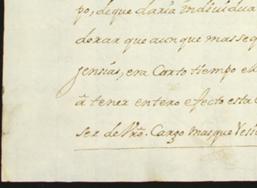 po, de que daria individua
dorar que aunque mas se q
gensias, era Corto tiempo el
à tener entero efecto esta
ser de Vrô. Cargo mas que Vesi